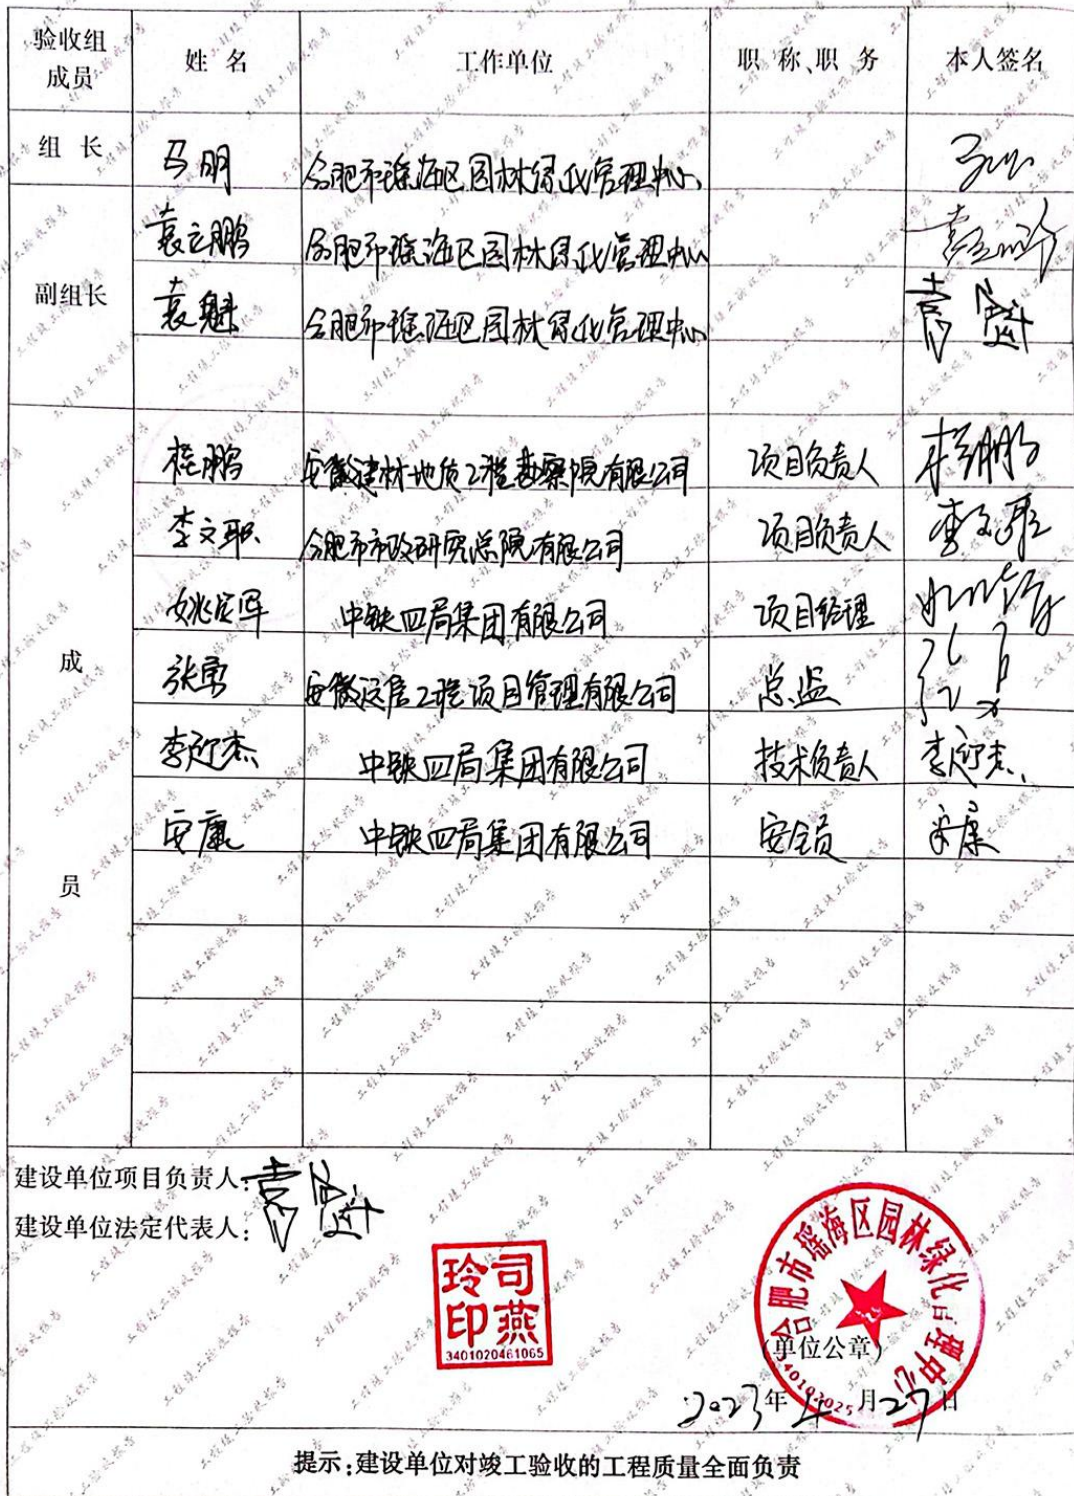 验收组成员 姓名 工作单位 职称、职务 本人签名
组长 马朋 合肥市瑶海区园林绿化管理中心
副组长 袁立鹏 合肥市瑶海区园林绿化管理中心
袁魁 合肥市瑶海区园林绿化管理中心 袁魁
成员 程鹏 安徽建材地质工程勘察院有限公司 项目负责人 程鹏
李文 合肥市市政研究总院有限公司 项目负责人 李文
中铁四局集团有限公司 项目经理
张勇 项目管理有限公司 总监 张勇
李 杰 中铁四局集团有限公司 技术负责人 李 杰
安康 中铁四局集团有限公司 安全员 安康
建设单位项目负责人:袁魁
建设单位法定代表人:
司燕玲印
3401020461065
合肥市瑶海区园林绿化管理中心
(单位公章)
2023年4月27日
提示:建设单位对竣工验收的工程质量全面负责
工程竣工验收报告